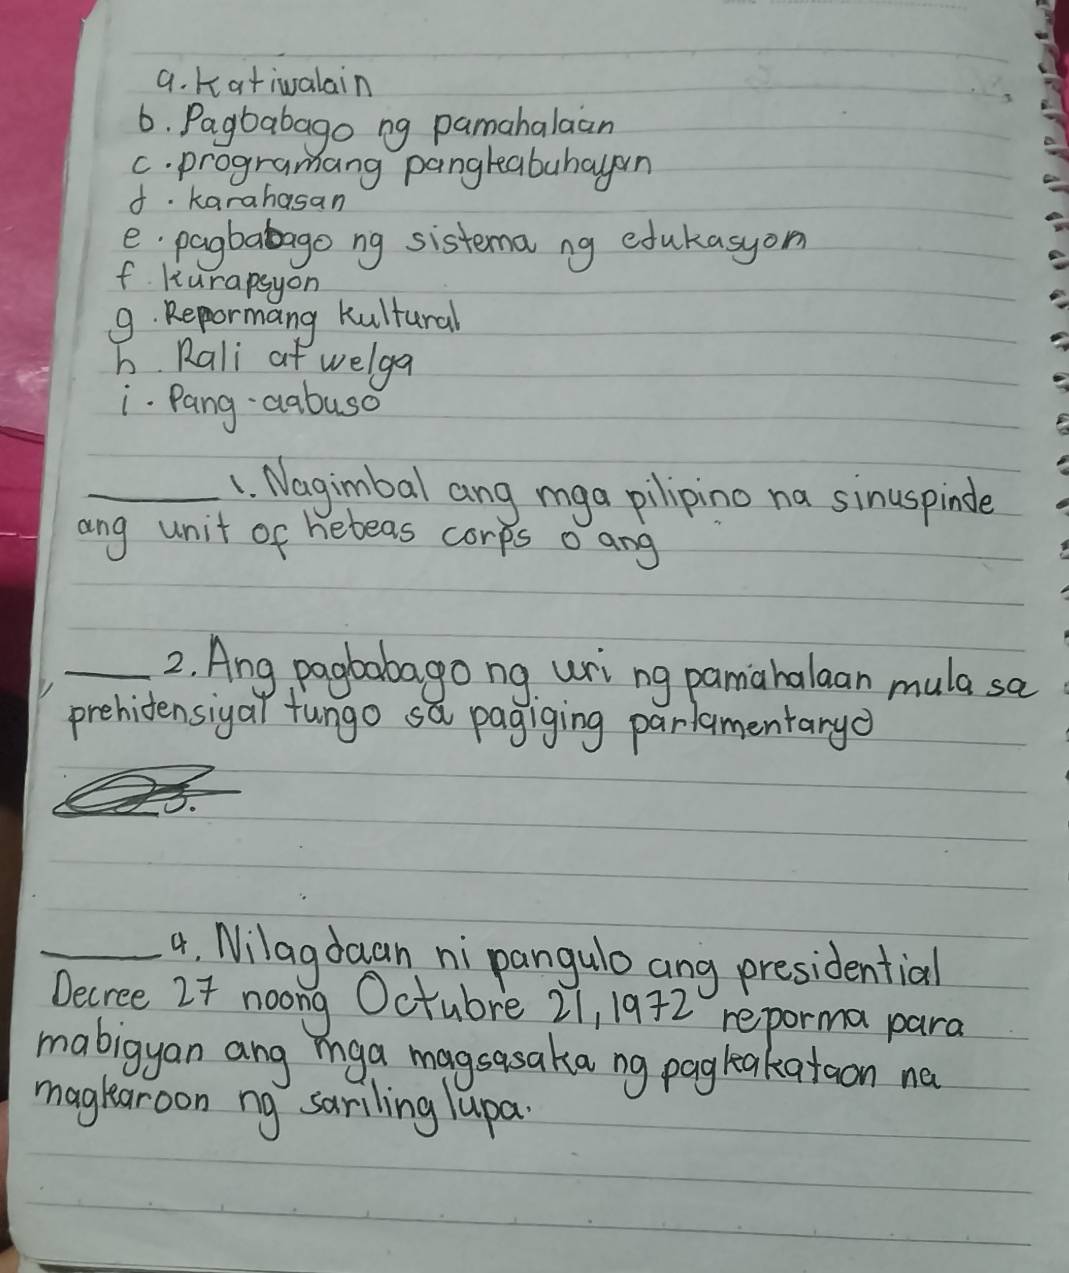 a. Katiwalain
b. Pagbabago ng pamahalaan
c. programang pangkabuhayan
d. karahasan
e. pagbabago ng sistema ng edukasyon
f. kurapsyon
g. Repormang kultural
h. Rali at welga
i. Pang-aabuso
______ 1. Nagimbal ang mga pilipino na sinuspinde
ang unit of hebeas corps o ang
____ 2. Ang pagbabago ng uri ng pamahalaan mula sa
prehidensiyal tungo sa pagiging parlamentaryo
3.
_____ 4. Nilagdaan ni pangulo ang presidential
Decree 27 noong Octubre 21, 1972 reporma para
mabigyan ang mga magsasaka ng pagkakataon na
magkaroon ng sariling lupa.